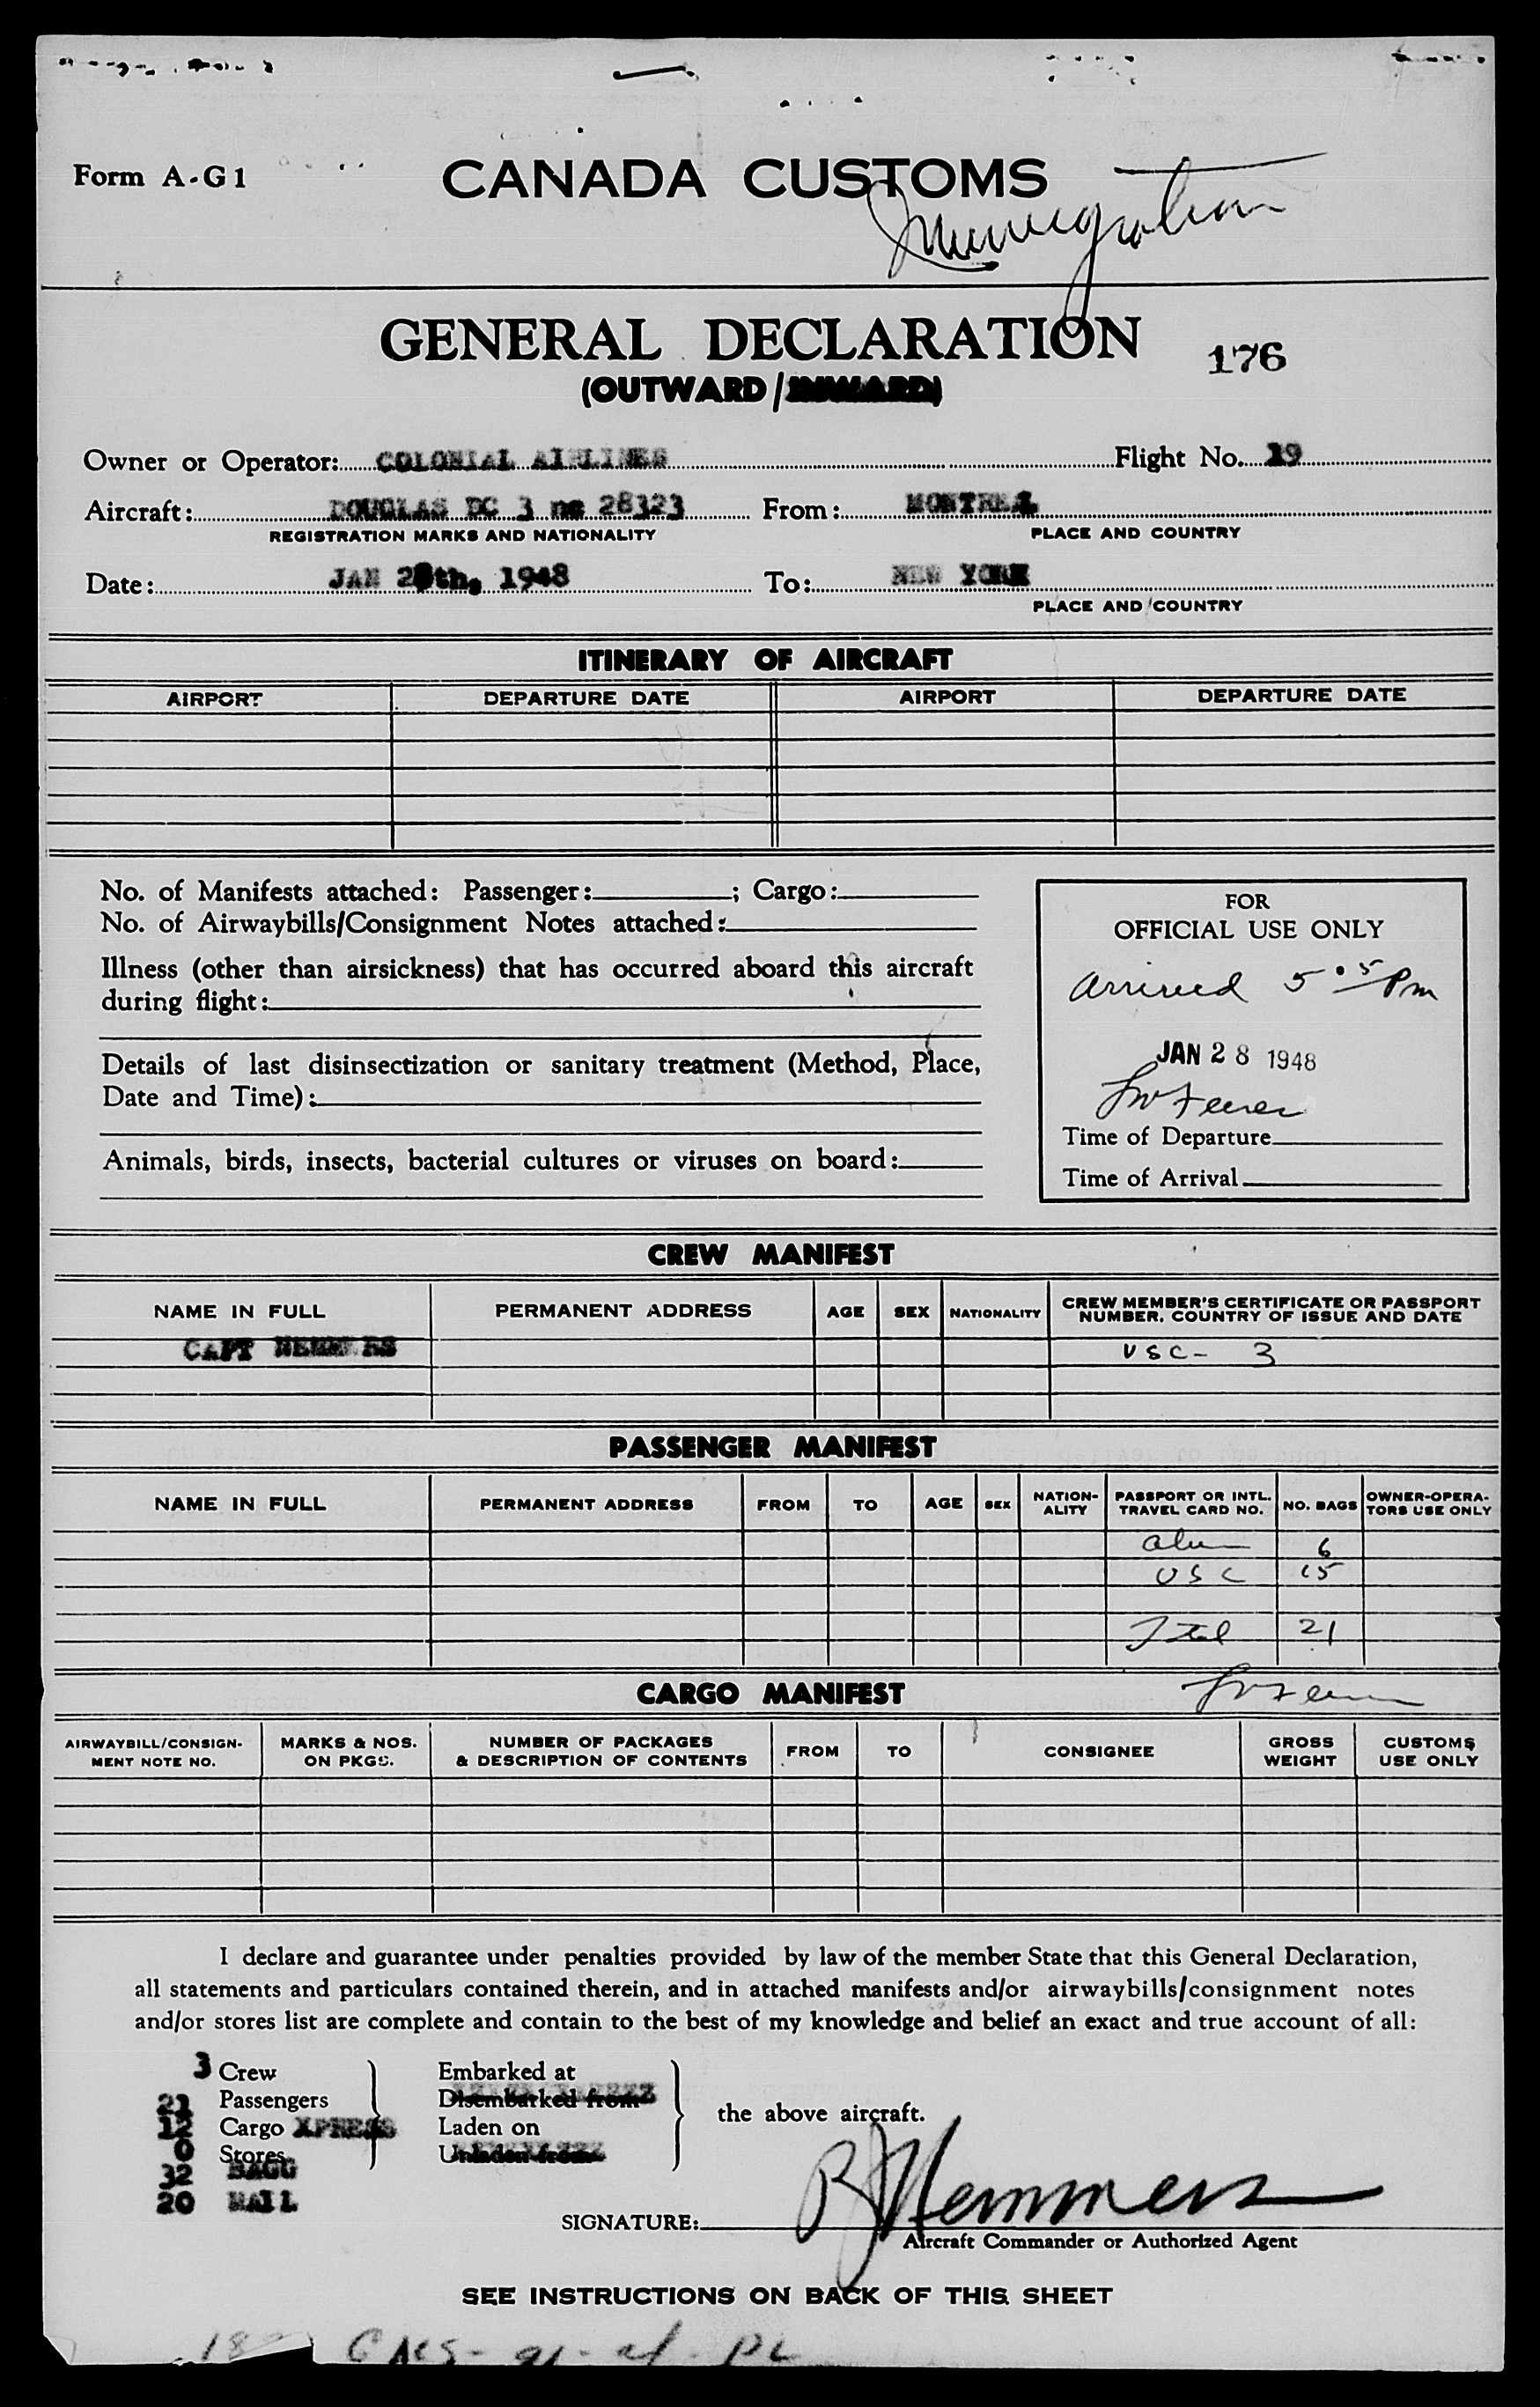 Form A-G1
CANADA CUSTOMS
Immigration
GENERAL DECLARATION
176
(OUTWARD/INWARD)
Owner or Operator: COLONIAL AIRLINES Flight No. 19
Aircraft: DOUGLAS DC 3 nc 28323 From: MONTREAL
REGISTRATION MARKS AND NATIONALITY PLACE AND COUNTRY
Date: JAN 28th, 1948 To: NEW YORK
PLACE AND COUNTRY
ITINERARY OF AIRCRAFT
AIRPORT DEPARTURE DATE AIRPORT DEPARTURE DATE
No. of Manifests attached: Passenger: ; Cargo:
No. of Airwaybills/Consignment Notes attached:
Illness (other than airsickness) that has occurred aboard this aircraft
during flight:
Details of last disinsectization or sanitary treatment (Method, Place,
Date and Time):
Animals, birds, insects, bacterial cultures or viruses on board:
FOR
OFFICIAL USE ONLY
arrived 5 05 Pm
JAN 28 1948
Time of Departure
Time of Arrival
CREW MANIFEST
NAME IN FULL PERMANENT ADDRESS AGE SEX NATIONALITY CREW MEMBER'S CERTIFICATE OR PASSPORT NUMBER, COUNTRY OF ISSUE AND DATE
CAPT HEMMERS USC - 3
PASSENGER MANIFEST
NAME IN FULL PERMANENT ADDRESS FROM TO AGE SEX NATION-ALITY PASSPORT OR INTL. TRAVEL CARD NO. NO. BAGS OWNER-OPERA-TORS USE ONLY
alien 6
USC 15
Total 21
CARGO MANIFEST
AIRWAYBILL/CONSIGN-MENT NOTE NO. MARKS & NOS. ON PKGS. NUMBER OF PACKAGES & DESCRIPTION OF CONTENTS FROM TO CONSIGNEE GROSS WEIGHT CUSTOMS USE ONLY
I declare and guarantee under penalties provided by law of the member State that this General Declaration,
all statements and particulars contained therein, and in attached manifests and/or airwaybills/consignment notes
and/or stores list are complete and contain to the best of my knowledge and belief an exact and true account of all:
3 Crew Embarked at
21 Passengers Disembarked from
the above aircraft.
12 Cargo XPRESS Laden on
0 Stores Unladen from
32 BAGG
20 MAIL
SIGNATURE: B J Hemmers
Aircraft Commander or Authorized Agent
SEE INSTRUCTIONS ON BACK OF THIS SHEET